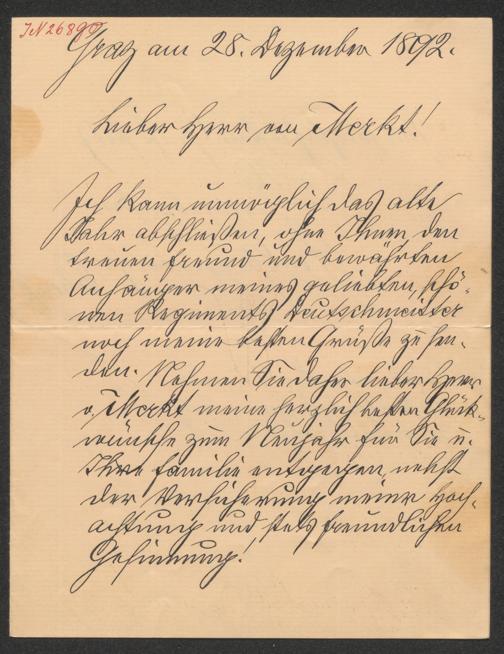 JN 26890
Graz am 28. Dezember 1892.
Lieber Herr von Merkt!
Ich kann unmöglich das alte
Jahr abschließen, ohne Ihnen den
treuen Freund und bewährten
Anhänger meines geliebten, schö-
nen Regiments Deutschmeister
noch meine besten Grüße zu sen-
den. Nehmen Sie daher lieber Herr
v. Merkt meine herzlich besten Glück-
wünsche zum Neujahr für Sie u.
Ihre Familie entgegen, nebst
der Versicherung meiner Hoch-
achtung und stets freundlichen
Gesinnung!